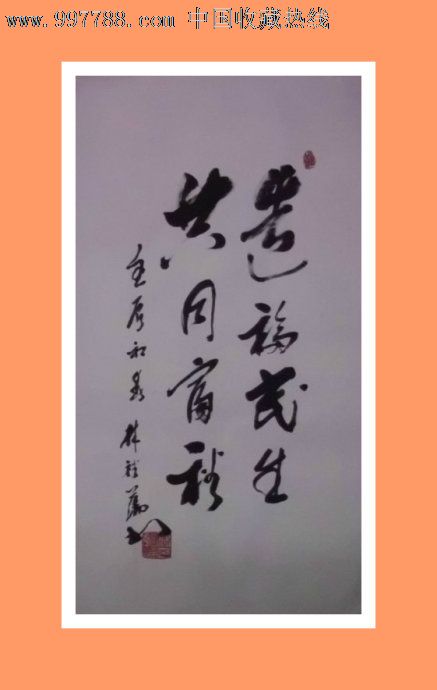 www.997788.com 中国收藏热线
造福民生
共同富裕
壬辰初 林 书